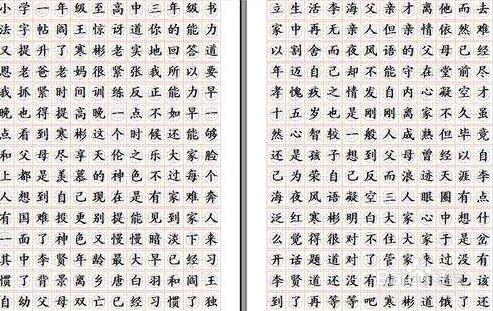 小学一年级至高中三年级书
法字帖阎王惊讶道你的能力
又提升了寒彬老实地回答道
恩老爸老妈很紧张我所以要
我抓紧时间训练反正能力早
晚也得提高晚一点不如早一
点看到寒彬这个时候还能够
和父母尽享天伦之乐大家脸
上都是羡慕的神色不过每个
人想到自己现在是有家难奔
有国难投更别提能见到家人
一面了神色又慢慢暗淡下来
其中李贤年龄最大早已经习
惯了背景离乡唐白羽和阎王
自幼父母双亡已经习惯了独
立生活李海父亲才离他而去
家中再无亲人但亲情依然难
以割舍而夜风语的父母已经
年迈自己却不能守在堂前尽
孝愧疚之情发自内心凝空才
十五岁也是刚刚离家不久虽
然心智较一般人成熟但毕竟
还是孩子想到父母曾经以自
己为荣自己反而浪迹天涯李
海夜风语凝空三人眼圈有点
泛红寒彬明白大家心中想什
么觉得很对不住大家于是岔
开话题道对了管家
李贤道还没有
到了再等等吧寒彬道饿了还